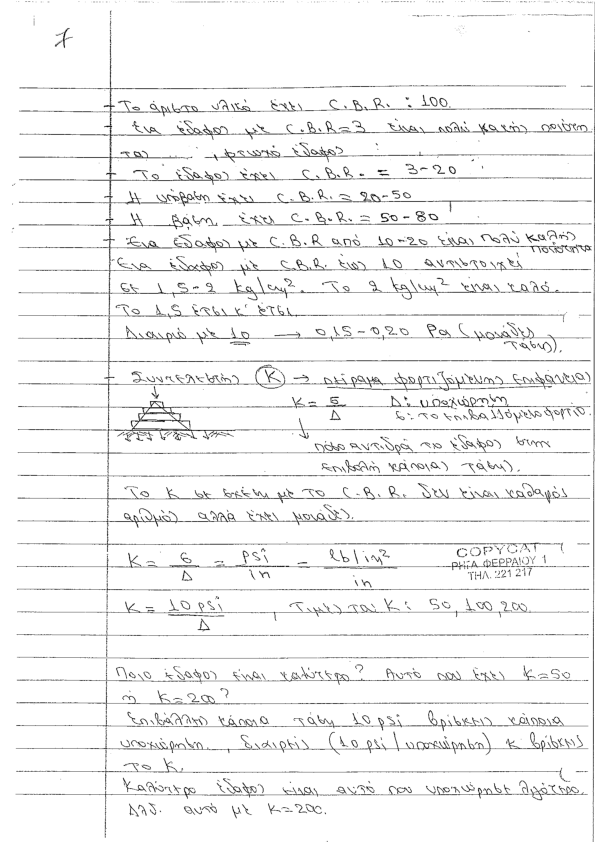 7
- Το άριστο υλικό έχει C.B.R. : 100.
Ένα έδαφος με C.B.R=3 είναι πολύ κακής ποιότη
τας , φτωχό έδαφος
- Το έδαφος έχει C.B.R. = 3-20
- Η υπόβαση έχει C.B.R. = 20-50
- Η βάση έχει C.B.R. = 50-80
- Ένα έδαφος με C.B.R από 10-20 είναι πολύ καλής
ποιότητα
Ένα έδαφος με C.B.R. έως 10 αντιστοιχεί
σε 1,5-2 kg/cm². Το 2 kg/cm² είναι καλό.
Το 1,5 έτσι κ' έτσι.
Διαιρώ με 10 → 0,15-0,20 Pa (μονάδες
τάσης).
- Συντελεστής K → πείραμα φορτιζόμενης επιφάνειας
K = σ/Δ Δ: υποχώρηση
σ: το επιβαλλόμενο φορτίο.
πόσο αντιδρά το έδαφος στην
επιβολή κάποιας τάσης.
Το K σε σχέση με το C.B.R. δεν είναι καθαρός
αριθμός αλλά έχει μονάδες.
K = σ/Δ = psi/in = lb/in²/in
COPYCAT
ΡΗΓΑ ΦΕΡΡΑΙΟΥ 1
ΤΗΛ. 221 217
K = 10 psi/Δ , Τιμές του K: 50, 100, 200.
Ποιο έδαφος είναι καλύτερο? Αυτό που έχει K=50
ή K=200?
Επιβάλλεις κάποια τάση 10 psi βρίσκεις κάποια
υποχώρηση, διαιρείς (10 psi/υποχώρηση) κ βρίσκεις
το K.
Καλύτερο έδαφος είναι αυτό που υποχώρησε λιγότερο.
Δλδ. αυτό με K=200.